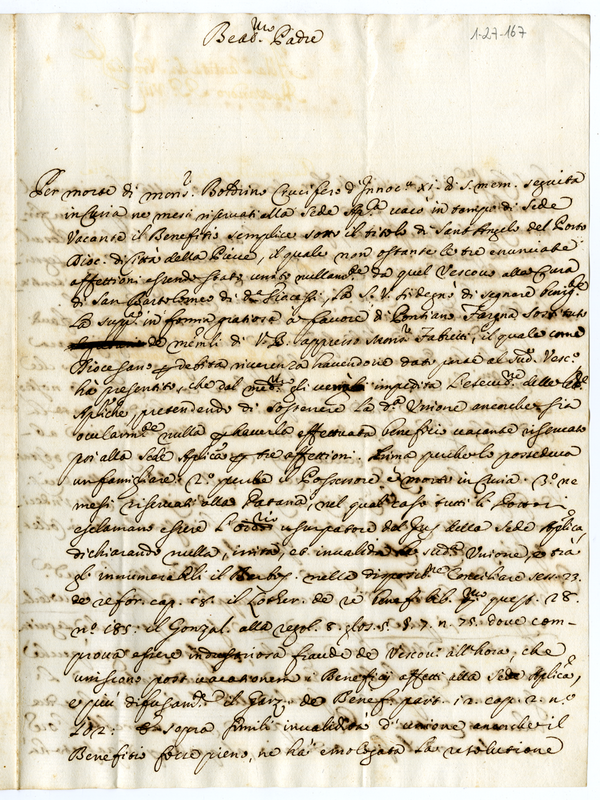 1-27-167
Beat.mo Padre
Per morte di Mons.r Bottino Crucifero d'Innoc.o xi. di s. mem. seguita
in Curia ne mesi riservati alla Sede Ap.ca vacò in tempo di Sede
Vacante il Benefitio semplice sotto il titolo di Sant'Angelo del Porto
Dioc. di Città della Pieve, il quale non ostante le tre enunciate
affettioni essendo stato unito nullam.te da quel Vescovo alla Cura
di San Bartolomeo di d.a La S. V. si degnò di segnare benig.te
La supp.ca in forma gratiosa à favore di Fargna sostituto
de mem.li di V. B. appresso Mons.r Fabritio, il quale come
Diocesano p debita riverenza havendone dato parte al sud.o Vesc.o
hà presentito, che dal med.mo gli venga impedita l'esecut.ne delle
Ap.liche, pretendendo di sostenere la d.a Unione ancorche sia
ocularm.te nulla p haverla effettuata benefitio vacante riservato
poi alla Sede Aplica p tre affettioni. Prima perche lo possedeva
un familiare. 2.o perche il Possessore è morto in Curia. 3.o ne
mesi riservati alla Dataria, nel qual caso tutti li Dottori
esclamano essere l'ord.rio usurpatore del Jus della Sede Aplica,
dichiarando nulla, irrita, et invalida la sud.a Unione, e trà
gl'innumerabili il Barbos. nella disposit.ne Conciliare sess. 23.
de refor. cap. 18. il Lotter. de re benef. lib. p.mo quest. 28.
n.o 185. il Gonzal. alla regol. 8. glos. 5. §. 7. n. 75. dove com-
prova essere industriosa fraude de Vescovi all'hora, che
uniscano post vacationem i Benefitij affetti alla Sede Aplica,
e più difusam.te il Garz. de Benef. part. 12. cap. 2. n.o
202. E sopra simili invalidità d'unione ancorche il
Benefitio fosse pieno, ne hà emologata la resolutione